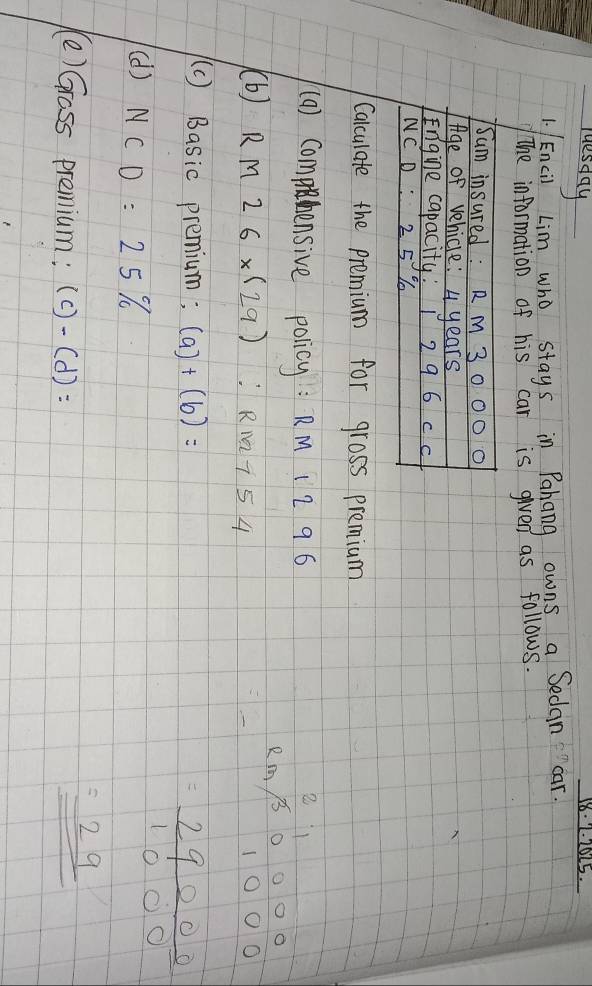 Tuesday
18.7.2025.
1. Encil Lim who stays in Pahang owns a Sedan car.
The information of his car is given as follows.
Sum insured: RM30000
Age of vehicle: 4 years
Engine capacity: 1296cc
NCD: 25%
Calculate the premium for gross premium
(a) Comprehensive policy: RM 1296
(b) RM26×(29) : RM754
(c) Basic premium; (a)+(b) =
(d) NCD: 25%
(e) Gross premium; (c)-(d):
2 1
RM 30000
- 1000
= 29000
1000
= 29